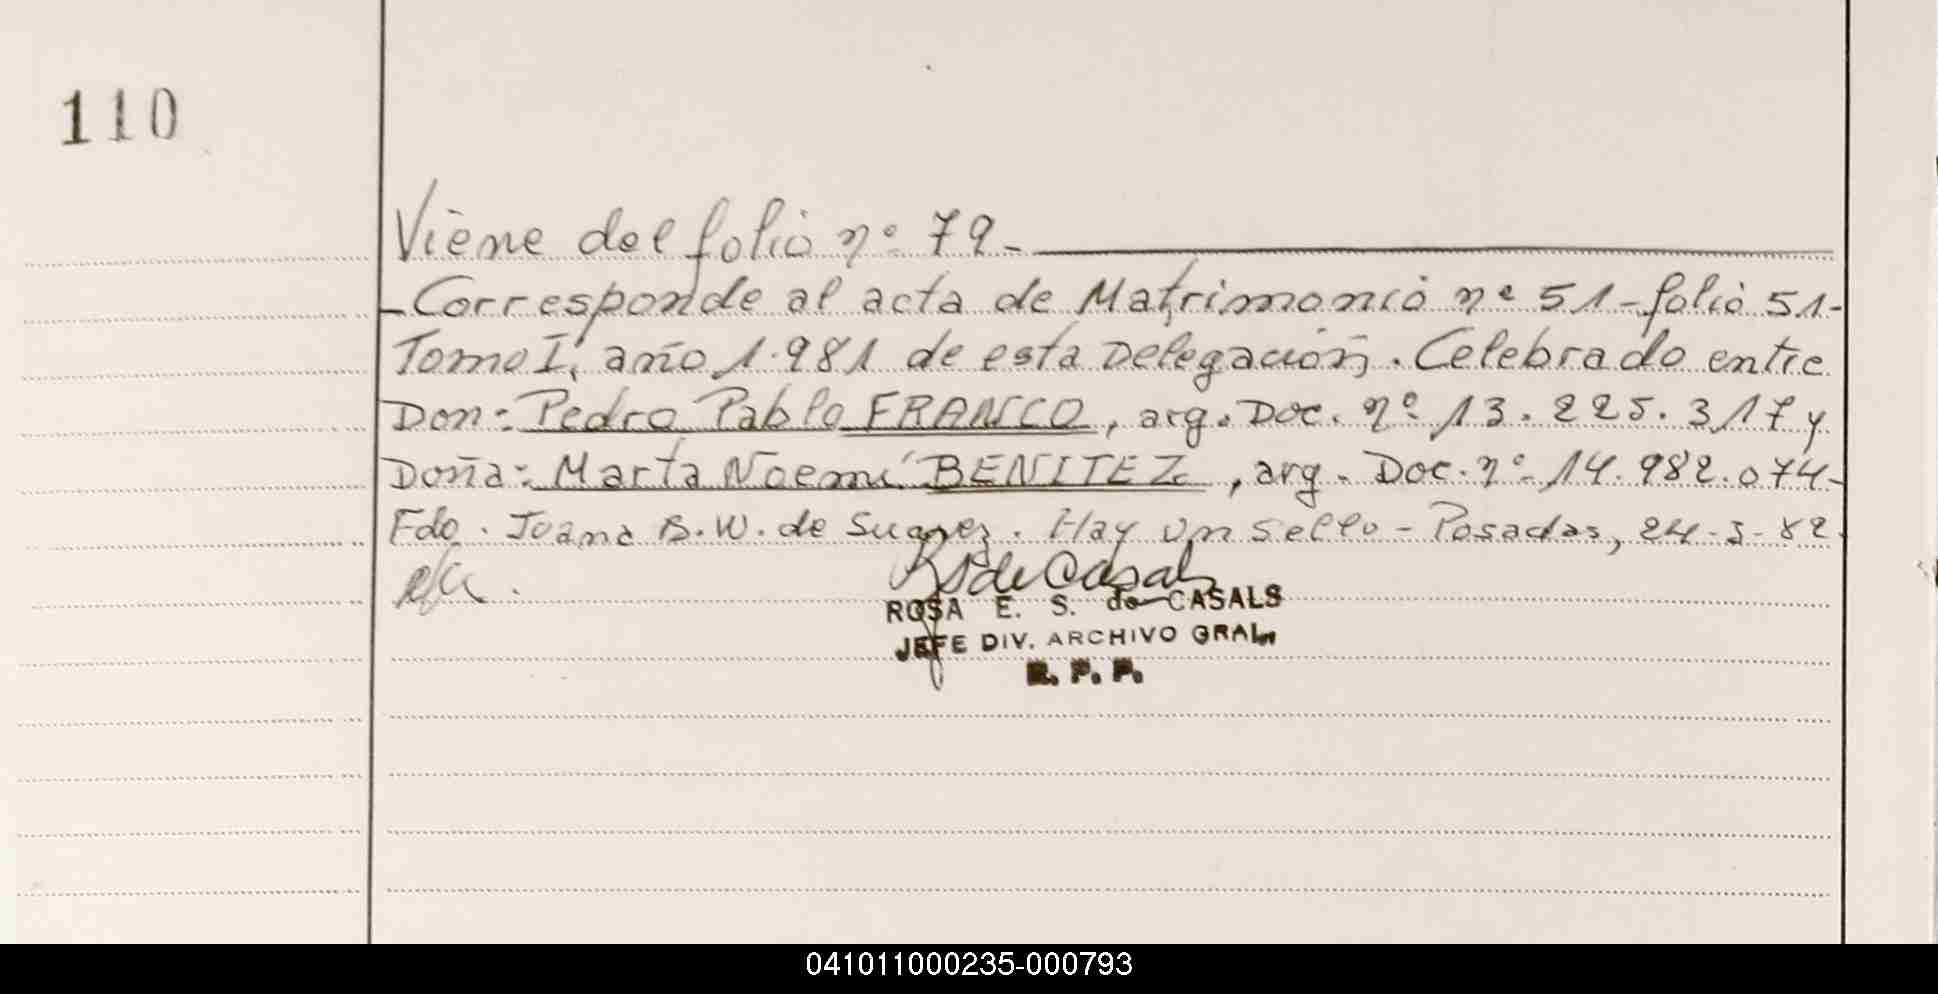 110
Viene del folio nº 79-
-Corresponde al acta de Matrimonio nº 51-folio 51-
Tomo I, año 1.981 de esta Delegación. Celebrado entre
Don: Pedro Pablo FRANCO, arg. Doc. nº 13.225.317 y
Doña: Marta Noemí BENITEZ, arg. Doc. nº 14.982.074-
Fdo. Joana B.W. de Suarez. Hay un sello - Posadas, 24-3-82.
RSdeCasals
ROSA E. S. de CASALS
JEFE DIV. ARCHIVO GRAL.
R. P. P.
041011000235-000793